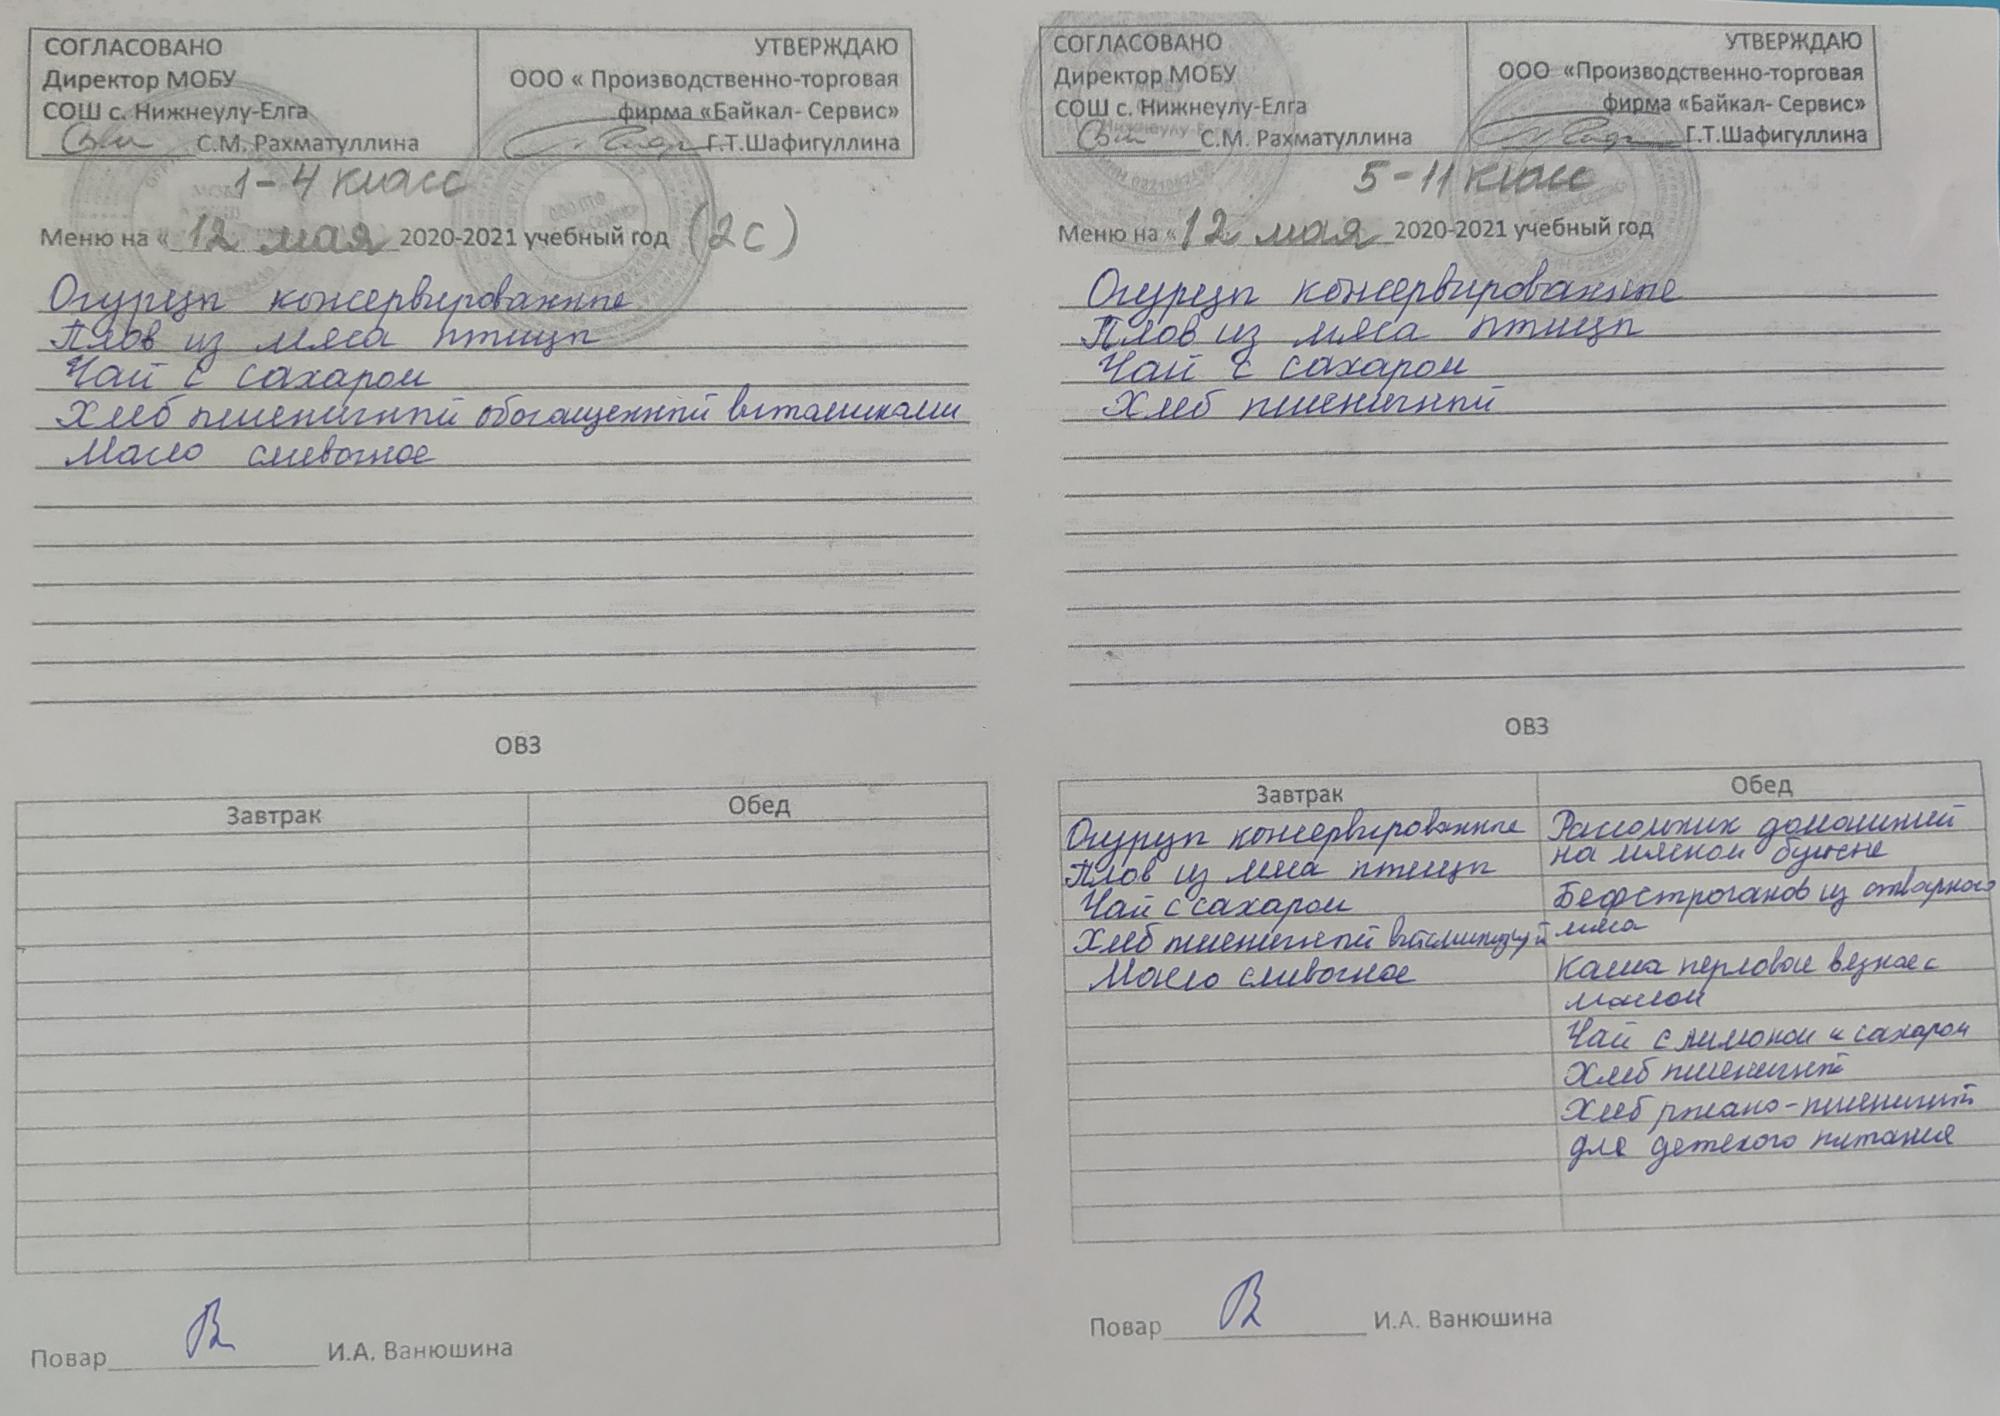 СОГЛАСОВАНО
Директор МОБУ
СОШ с. Нижнеулу-Елга
С.М. Рахматуллина
УТВЕРЖДАЮ
ООО « Производственно-торговая
фирма «Байкал- Сервис»
Г.Т.Шафигуллина
1-4 класс
Меню на « 12 мая 2020-2021 учебный год (2с)
Огурцы консервированные
Плов из мяса птицы
Чай с сахаром
Хлеб пшеничный обогащенный витаминами
Масло сливочное
ОВЗ
Завтрак Обед
Повар И.А. Ванюшина
СОГЛАСОВАНО
Директор МОБУ
СОШ с. Нижнеулу-Елга
С.М. Рахматуллина
УТВЕРЖДАЮ
ООО «Производственно-торговая
фирма «Байкал- Сервис»
Г.Т.Шафигуллина
5-11 класс
Меню на « 12 мая 2020-2021 учебный год
Огурцы консервированные
Плов из мяса птицы
Чай с сахаром
Хлеб пшеничный
ОВЗ
Завтрак
Огурцы консервированные
Плов из мяса птицы
Чай с сахаром
Хлеб пшеничный
Масло сливочное
Обед
Рассольник домашний
на мясном бульоне
Бефстроганов из отварного
мяса
Каша перловая вязкая с
маслом
Чай с лимоном и сахаром
Хлеб пшеничный
Хлеб ржано-пшеничный
для детского питания
Повар И.А. Ванюшина